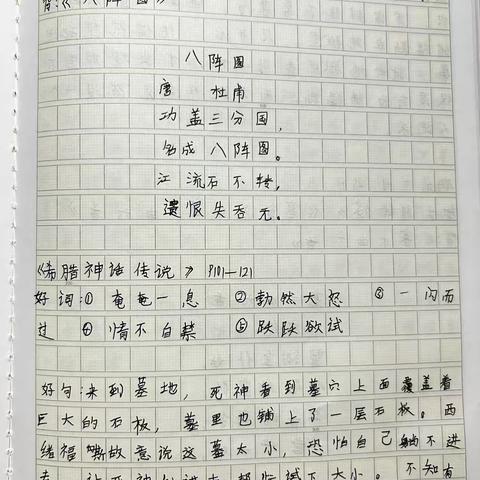 背:《八阵图》
八阵图
唐 杜甫
功盖三分国,
名成八阵图。
江流石不转,
遗恨失吞无。
《希腊神话传说》P101—121
好词:① 奄奄一息 ② 勃然大怒 ③ 一闪而
过 ④ 情不自禁 ⑤ 跃跃欲试
好句:来到墓地,死神看到墓穴上面覆盖着
巨大的石板,墓里也铺上了一层石板。西
绪福斯故意说这墓太小,恐怕自己躺不进
去,让死神 进去帮忙试下大小。不知有